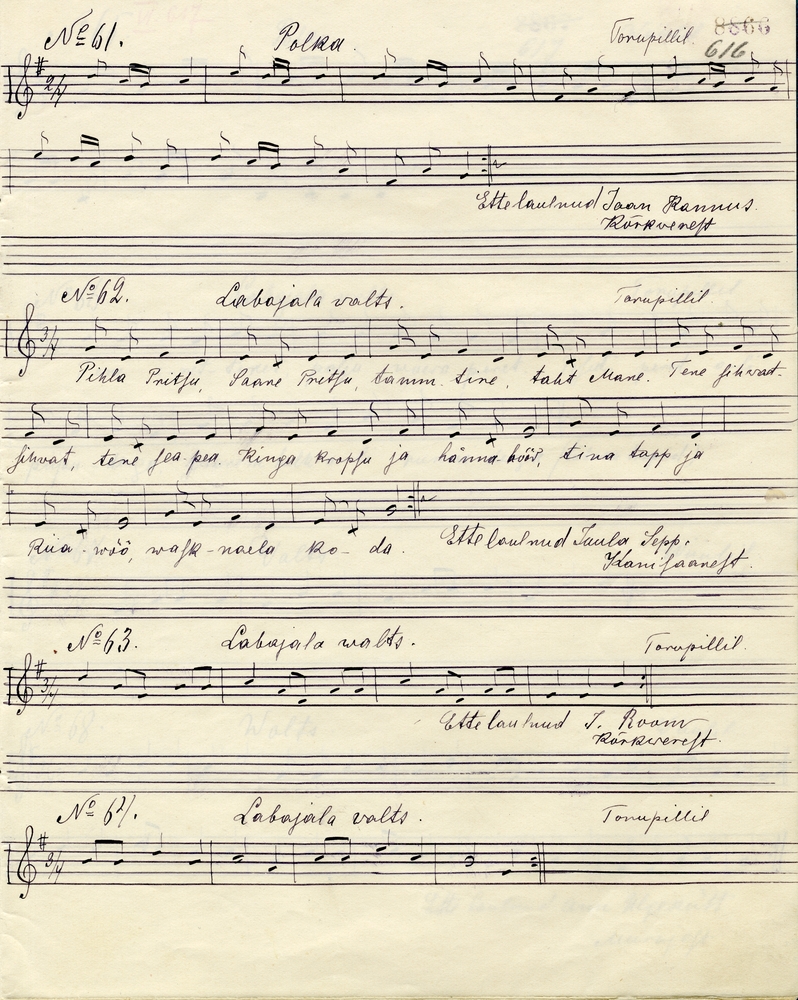 No 61. Polka. Torupillil. 8866
616
2/4
Ettelaulnud Jaan Rannus.
Kõrkverest
No 62. Labajala valts. Torupillil.
3/4
Pihla Pritsu, Saare Pritsu, tamm-tine, taht Mane. Tene sihvat-
sihvat, tene sea-pea. Kinga kropsu ja hänna-höör, tina tapp ja
Riia-wöö, wask-naela ko-da. Ettelaulnud Juula Sepp.
Kanisaarest.
No 63. Labajala walts. Torupillil.
3/4
Ettelaulnud J. Room
Kõrkverest.
No 64. Labajala valts. Torupillil
3/4